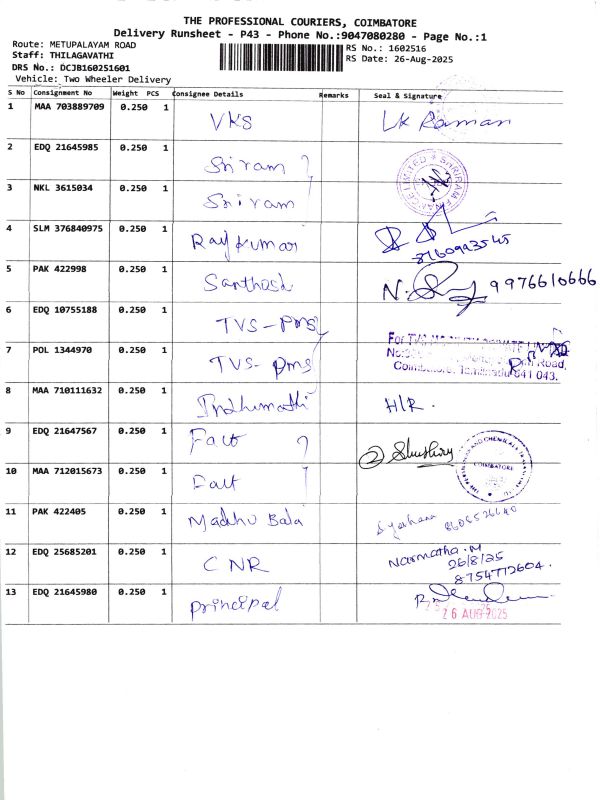 THE PROFESSIONAL COURIERS, COIMBATORE
Delivery Runsheet - P43 - Phone No.:9047080280 - Page No.:1
Route: METUPALAYAM ROAD
RS No.: 1602516
Staff: THILAGAVATHI
RS Date: 26-Aug-2025
DRS No.: DCJB160251601
Vehicle: Two Wheeler Delivery
S No Consignment No Weight PCS Consignee Details Remarks Seal & Signature
1 MAA 703889709 0.250 1 VKS Lk Raman
2 EDQ 21645985 0.250 1 Sriram
3 NKL 3615034 0.250 1 Sriram
4 SLM 376840975 0.250 1 Rajkumar 8760993545
5 PAK 422998 0.250 1 Santhosh N. 9976610666
6 EDQ 10755188 0.250 1 TVS-PMS
7 POL 1344970 0.250 1 TVS-PMS
For TVS
Road,
Coimbatore, Tamilnadu 641 043.
8 MAA 710111632 0.250 1 Indhumathi H/R.
9 EDQ 21647567 0.250 1 Fact
COIMBATORE
10 MAA 712015673 0.250 1 Fact
11 PAK 422405 0.250 1 Madhu Bala
12 EDQ 25685201 0.250 1 CNR Narmatha.M
26/8/25
8754772604.
13 EDQ 21645980 0.250 1 Principal
26 AUG 2025